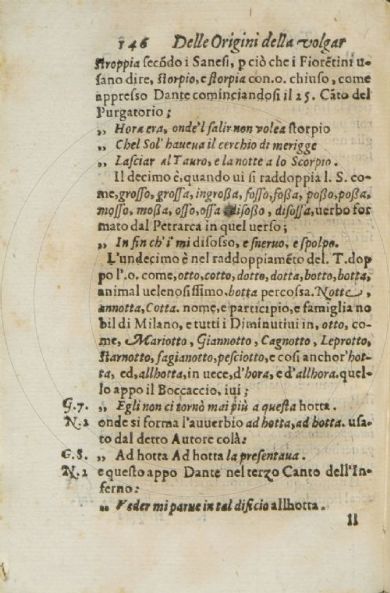 146 Delle Origini della volgar
stroppia secõdo i Sanesi, p ciò che i Fiorẽtini u-
sano dire, storpio, e storpia con.o. chiuso, come
appresso Dante cominciandosi il 25. Cãto del
Purgatorio;
„ Hora era, onde'l salir non volea storpio
„ Chel Sol' haueua il cerchio di merigge
„ Lasciar al Tauro, e la notte a lo Scorpio.
Il decimo è, quando ui si raddoppia l. S. co-
me, grosso, grossa, ingroßa, fosso, foßa, poßo, poßa,
mosso, moßa, osso, ossa disoßo, disossa, uerbo for
mato dal Petrarca in quel uerso;
„ In fin ch'i' mi disosso, e sneruo, e spolpo.
L'undecimo è nel raddoppiamẽto del. T. dop
po l'.o. come, otto, cotto, dotto, dotta, botto, botta,
animal uelenosissimo. botta percossa. Notte,
annotta, Cotta. nome, e participio, e famiglia no
bil di Milano, e tutti i Diminutiui in, otto, co-
me, Mariotto, Giannotto, Cagnotto, Leprotto,
starnotto, fagianotto, pesciotto, e così anchor' hot-
ta, ed, allhotta, in uece, d'hora, e d'allhora. quel-
lo appo il Boccaccio, iui;
G.7. „ Egli non ci tornò mai più a questa hotta.
N.2 onde si forma l'auuerbio ad hotta, ad hotta. usa-
to dal detto Autore colà:
G.8. „ Ad hotta Ad hotta la presentaua.
N.2 e questo appo Dante nel terzo Canto dell'In-
ferno:
„ Veder mi parue in tal dificio allhotta.
Il